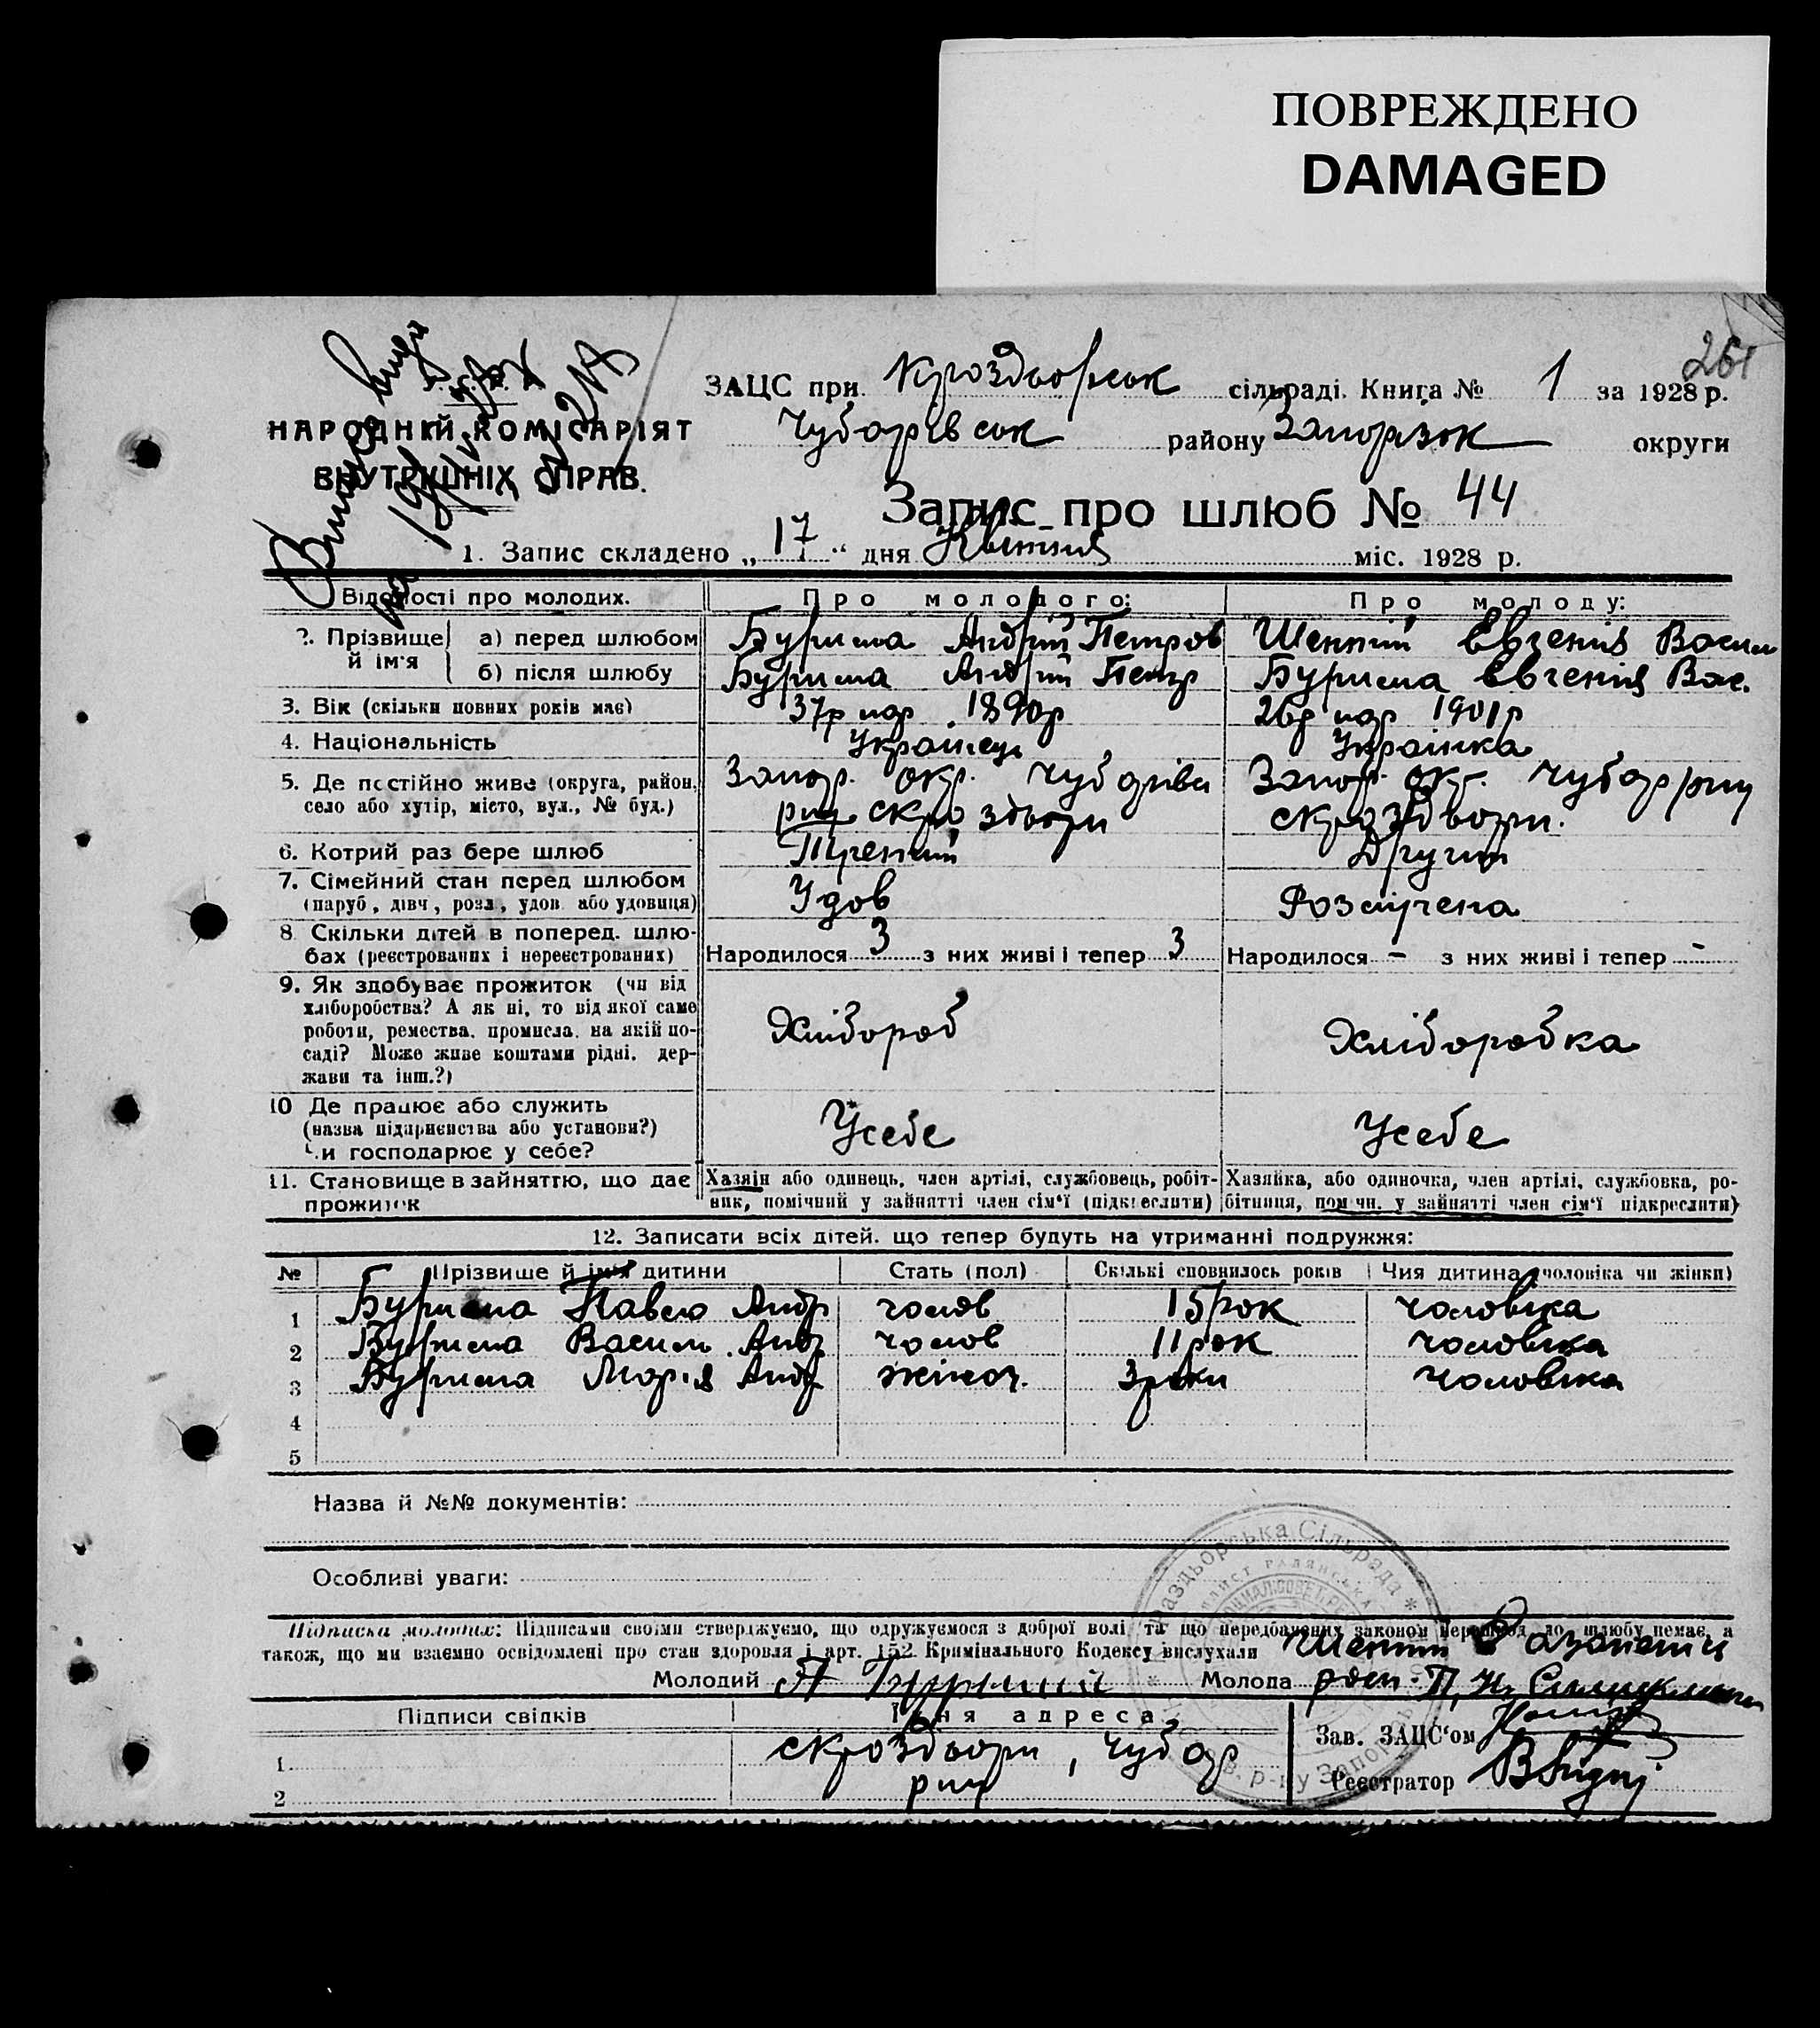 ПОВРЕЖДЕНО
DAMAGED
261
НАРОДНІЙ КОМІСАРІЯТ
ВНУТРІШНІХ СПРАВ.
ЗАЦС при Кроздьорськ сільраді. Книга № 1 за 1928 р.
Чубарівськ району Запорізьк округи
Запис про шлюб № 44
1. Запис складено „17“ дня Квітня міс. 1928 р.
Відомості про молодих. Про молодого: Про молоду:
2. Прізвище й ім'я а) перед шлюбом Бурима Андрій Петров Шептій Евгенія Васил
б) після шлюбу Бурима Андрій Петр Бурима Евгенія Вас.
3. Вік (скільки повних років має) 37р нар. 1890р 26р нар 1901р
4. Національність Українець Українка
5. Де постійно живе (округа, район, Запор. окр. Чубарівск Запор. окр. Чубар рну
село або хутір, місто, вул., № буд.) рну с Кроздьори с Кроздьори.
6. Котрий раз бере шлюб Третій Другий
7. Сімейний стан перед шлюбом Удов Розлучена
(паруб., дівч., розл., удов. або удовиця)
8. Скільки дітей в поперед. шлю-
бах (реєстрованих і нереєстрованих) Народилося 3 з них живі і тепер 3 Народилося - з них живі і тепер -
9. Як здобуває прожиток (чи від
хліборобства? А як ні, то від якої саме
роботи, ремества, промисла, на якій по- Хлібороб Хліборобка
саді? Може живе коштами рідні, дер-
жави та інш.?)
10 Де працює або служить
(назва підприємства або установи?) Усебе Усебе
Чи господарює у себе?
11. Становище в зайняттю, що дає Хазяїн або одинець, член артілі, службовець, робіт- Хазяйка, або одиночка, член артілі, службовка, ро-
прожиток ник, помічний у зайнятті член сім'ї (підкреслити) бітниця, помічн. у зайнятті член сім'ї підкреслити)
12. Записати всіх дітей, що тепер будуть на утриманні подружжя:
№ Прізвище й ім'я дитини Стать (пол) Скількі сповнилось років Чия дитина (чоловіка чи жінки)
1 Бурима Павло Андр чолов 15 рок чоловіка
2 Бурима Василь Андр чолов 11 рок чоловіка
3 Бурима Марія Андр жіноч. 3 роки чоловіка
4
5
Назва й №№ документів:
Особливі уваги:
Підписка молодих: Підписами своїми стверджуємо, що одружуємося з доброї волі та що передбачених законом перешкод до шлюбу немає, а
також, що ми взаємно освідомлені про стан здоров'я і арт. 152 Кримінального Кодексу вислухали
Молодий А Бурима Молода
Підписи свідків Їхня адреса Зав. ЗАЦС'ом
1. с Кроздьори, Чубар
2 рну Реєстратор